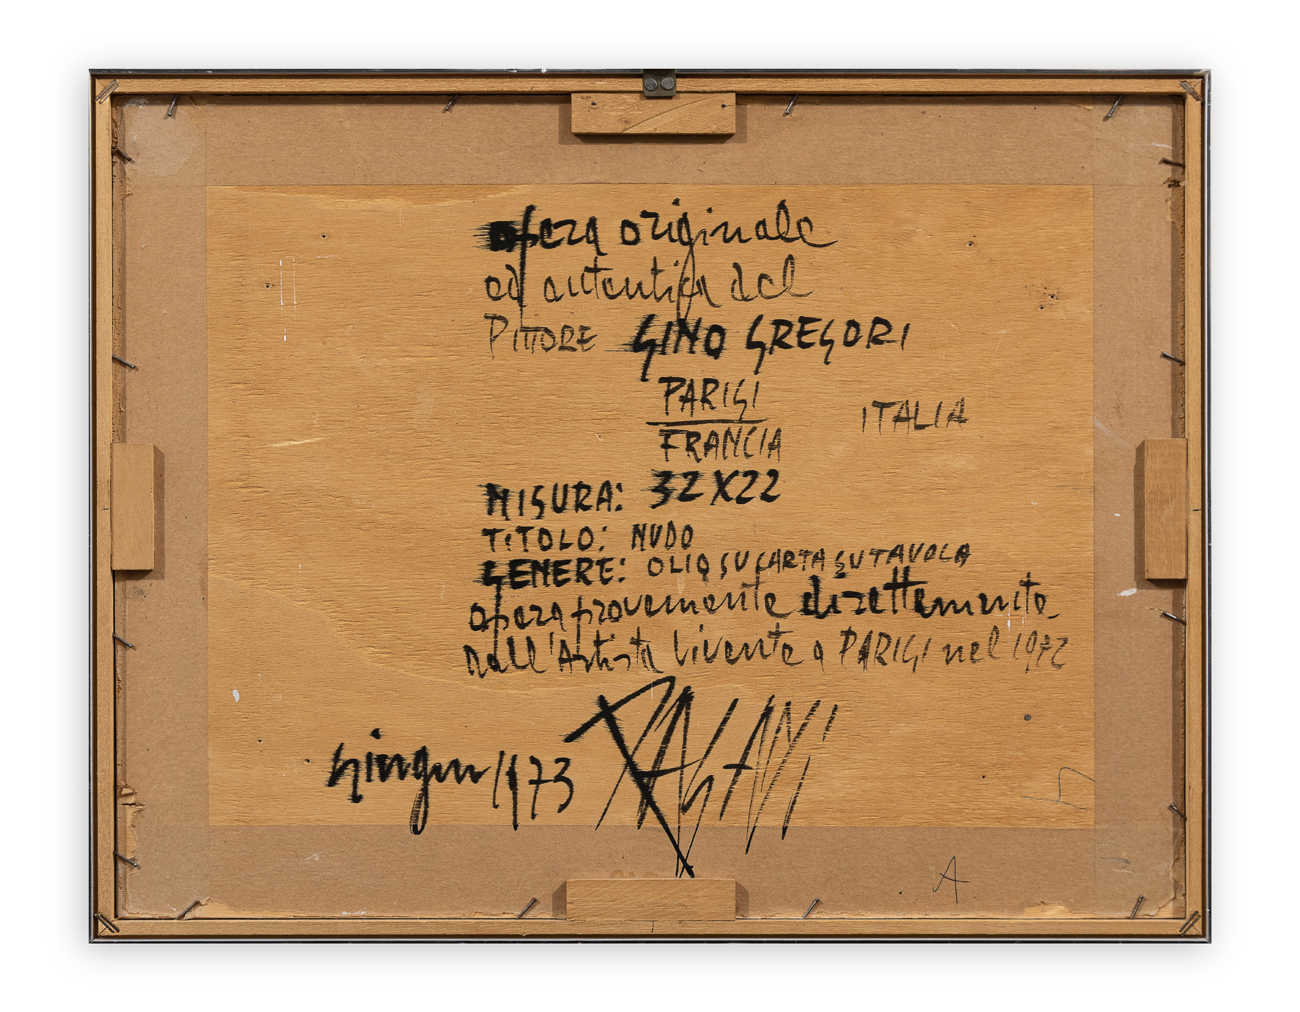 opera originale
ed autentica del
PITTORE GINO GREGORI
PARIGI
FRANCIA
ITALIA
MISURA: 32X22
TITOLO: NUDO
GENERE: OLIO SU CARTA SU TAVOLA
opera provemente direttemente
dall'Artista vivente a PARIGI nel 1972
1973
A